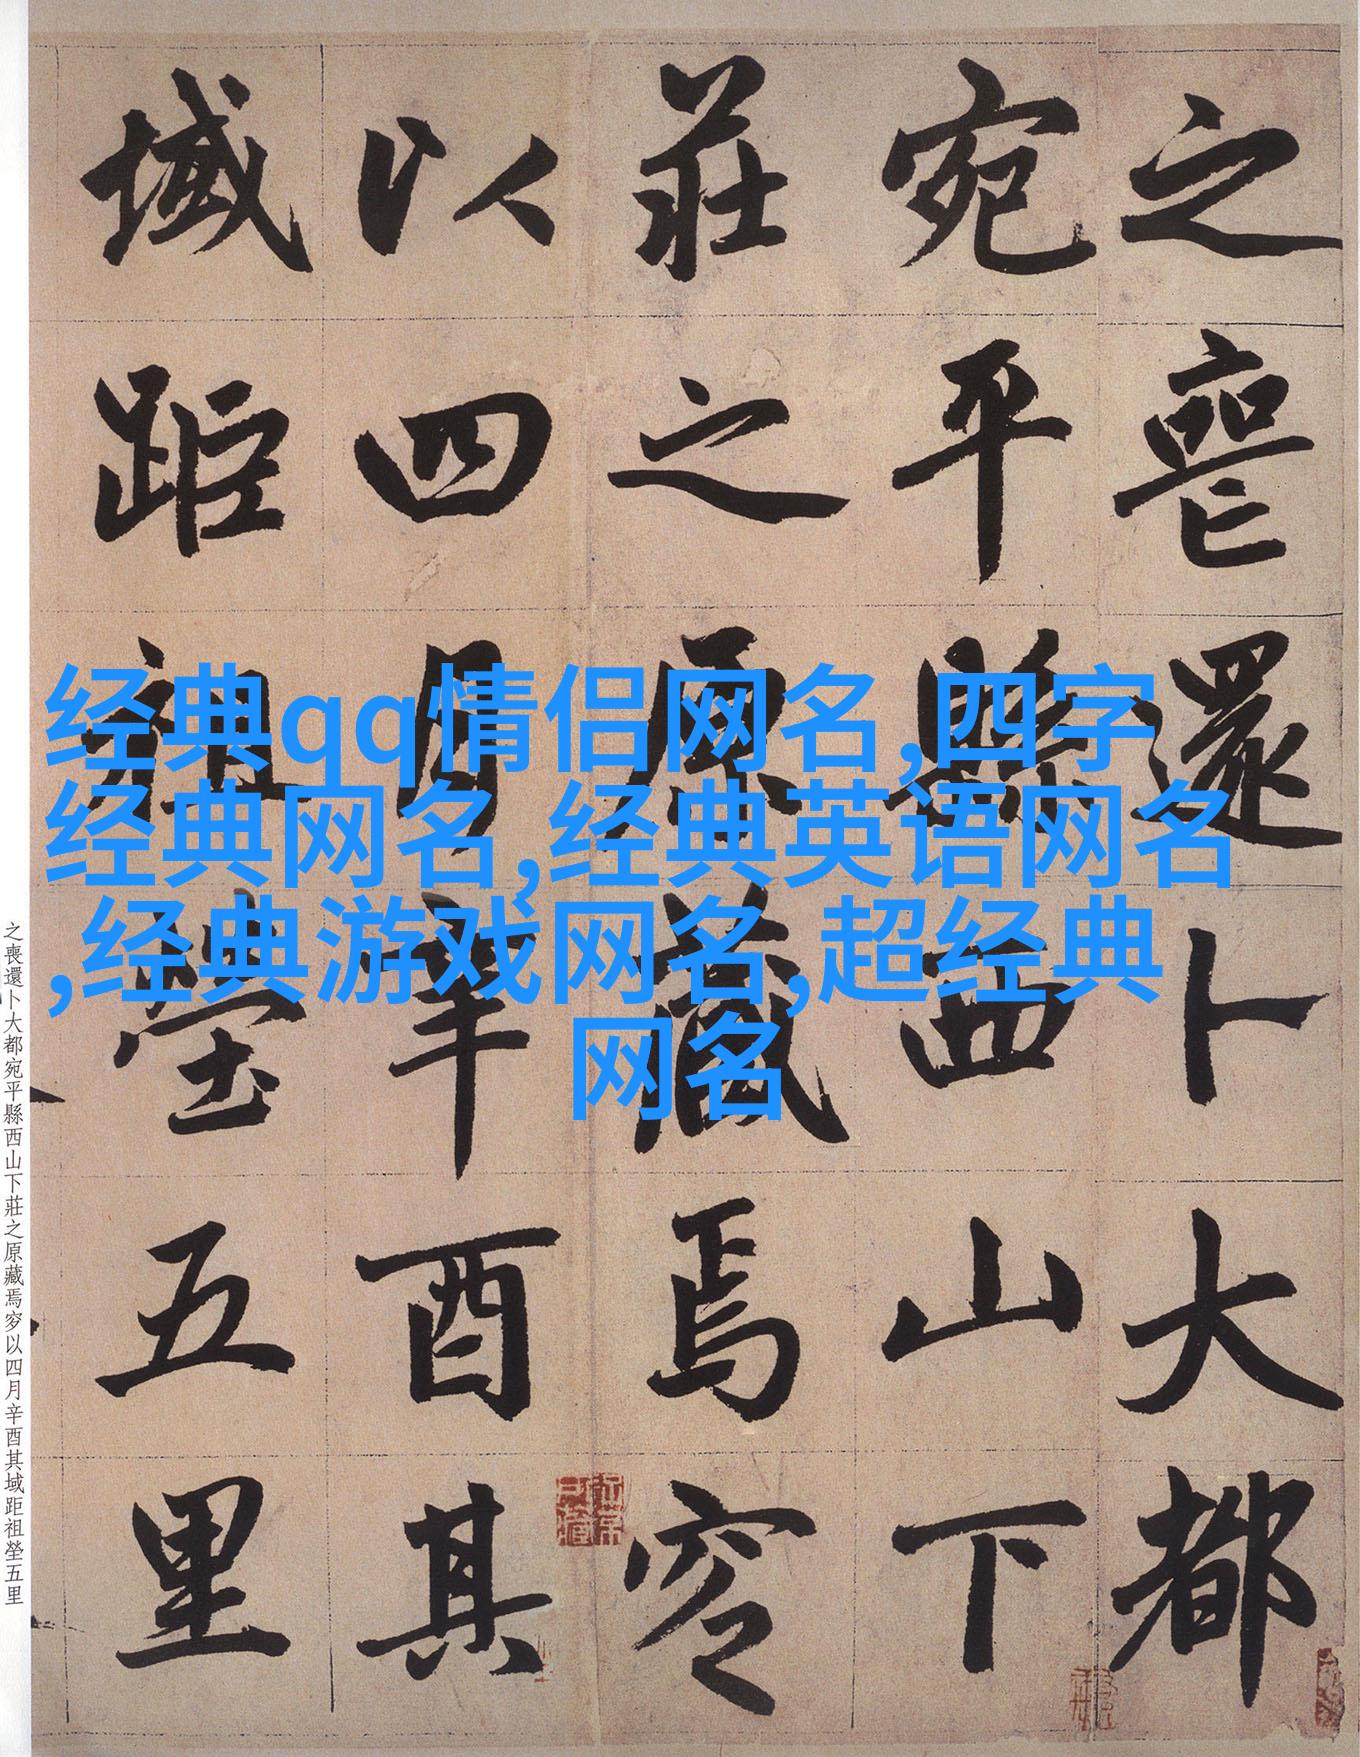 之喪還卜大都
宛平縣西山下
莊之原藏焉穸
以四月辛酉其
域距祖塋五里
经典qq情侣网名,四字
经典网名,经典英语网名
,经典游戏网名,超经典
网名
之喪還卜大都宛平縣西山下莊之原藏焉穸以四月辛酉其域距祖塋五里